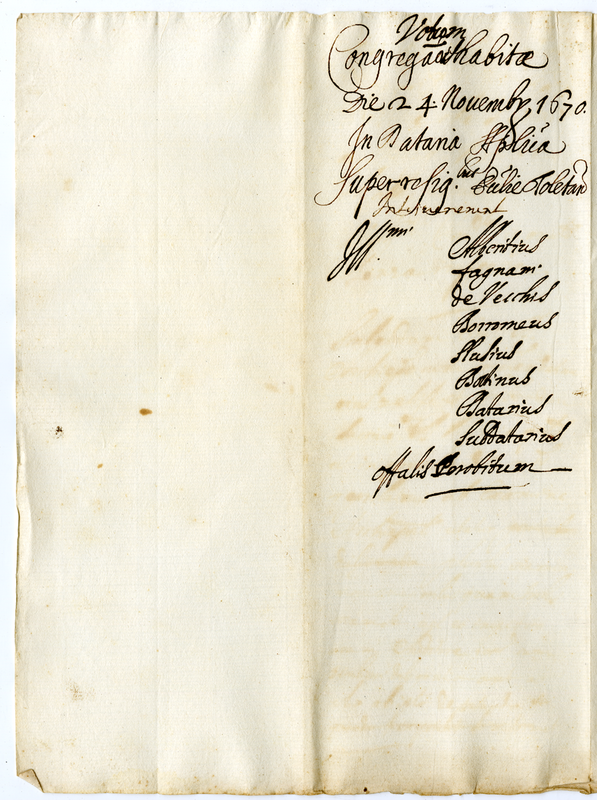 Votum
Congregãois habitæ
Die 24 Novembr. 1670.
In Dataria Aplica
Super resig.bus Eccliæ Toletan
Interuenerunt
Illmi. Albertius
fagnan.
de Vecchis
Borromeus
Slusius
Datarius
SubDatarius
offalis Per obitum